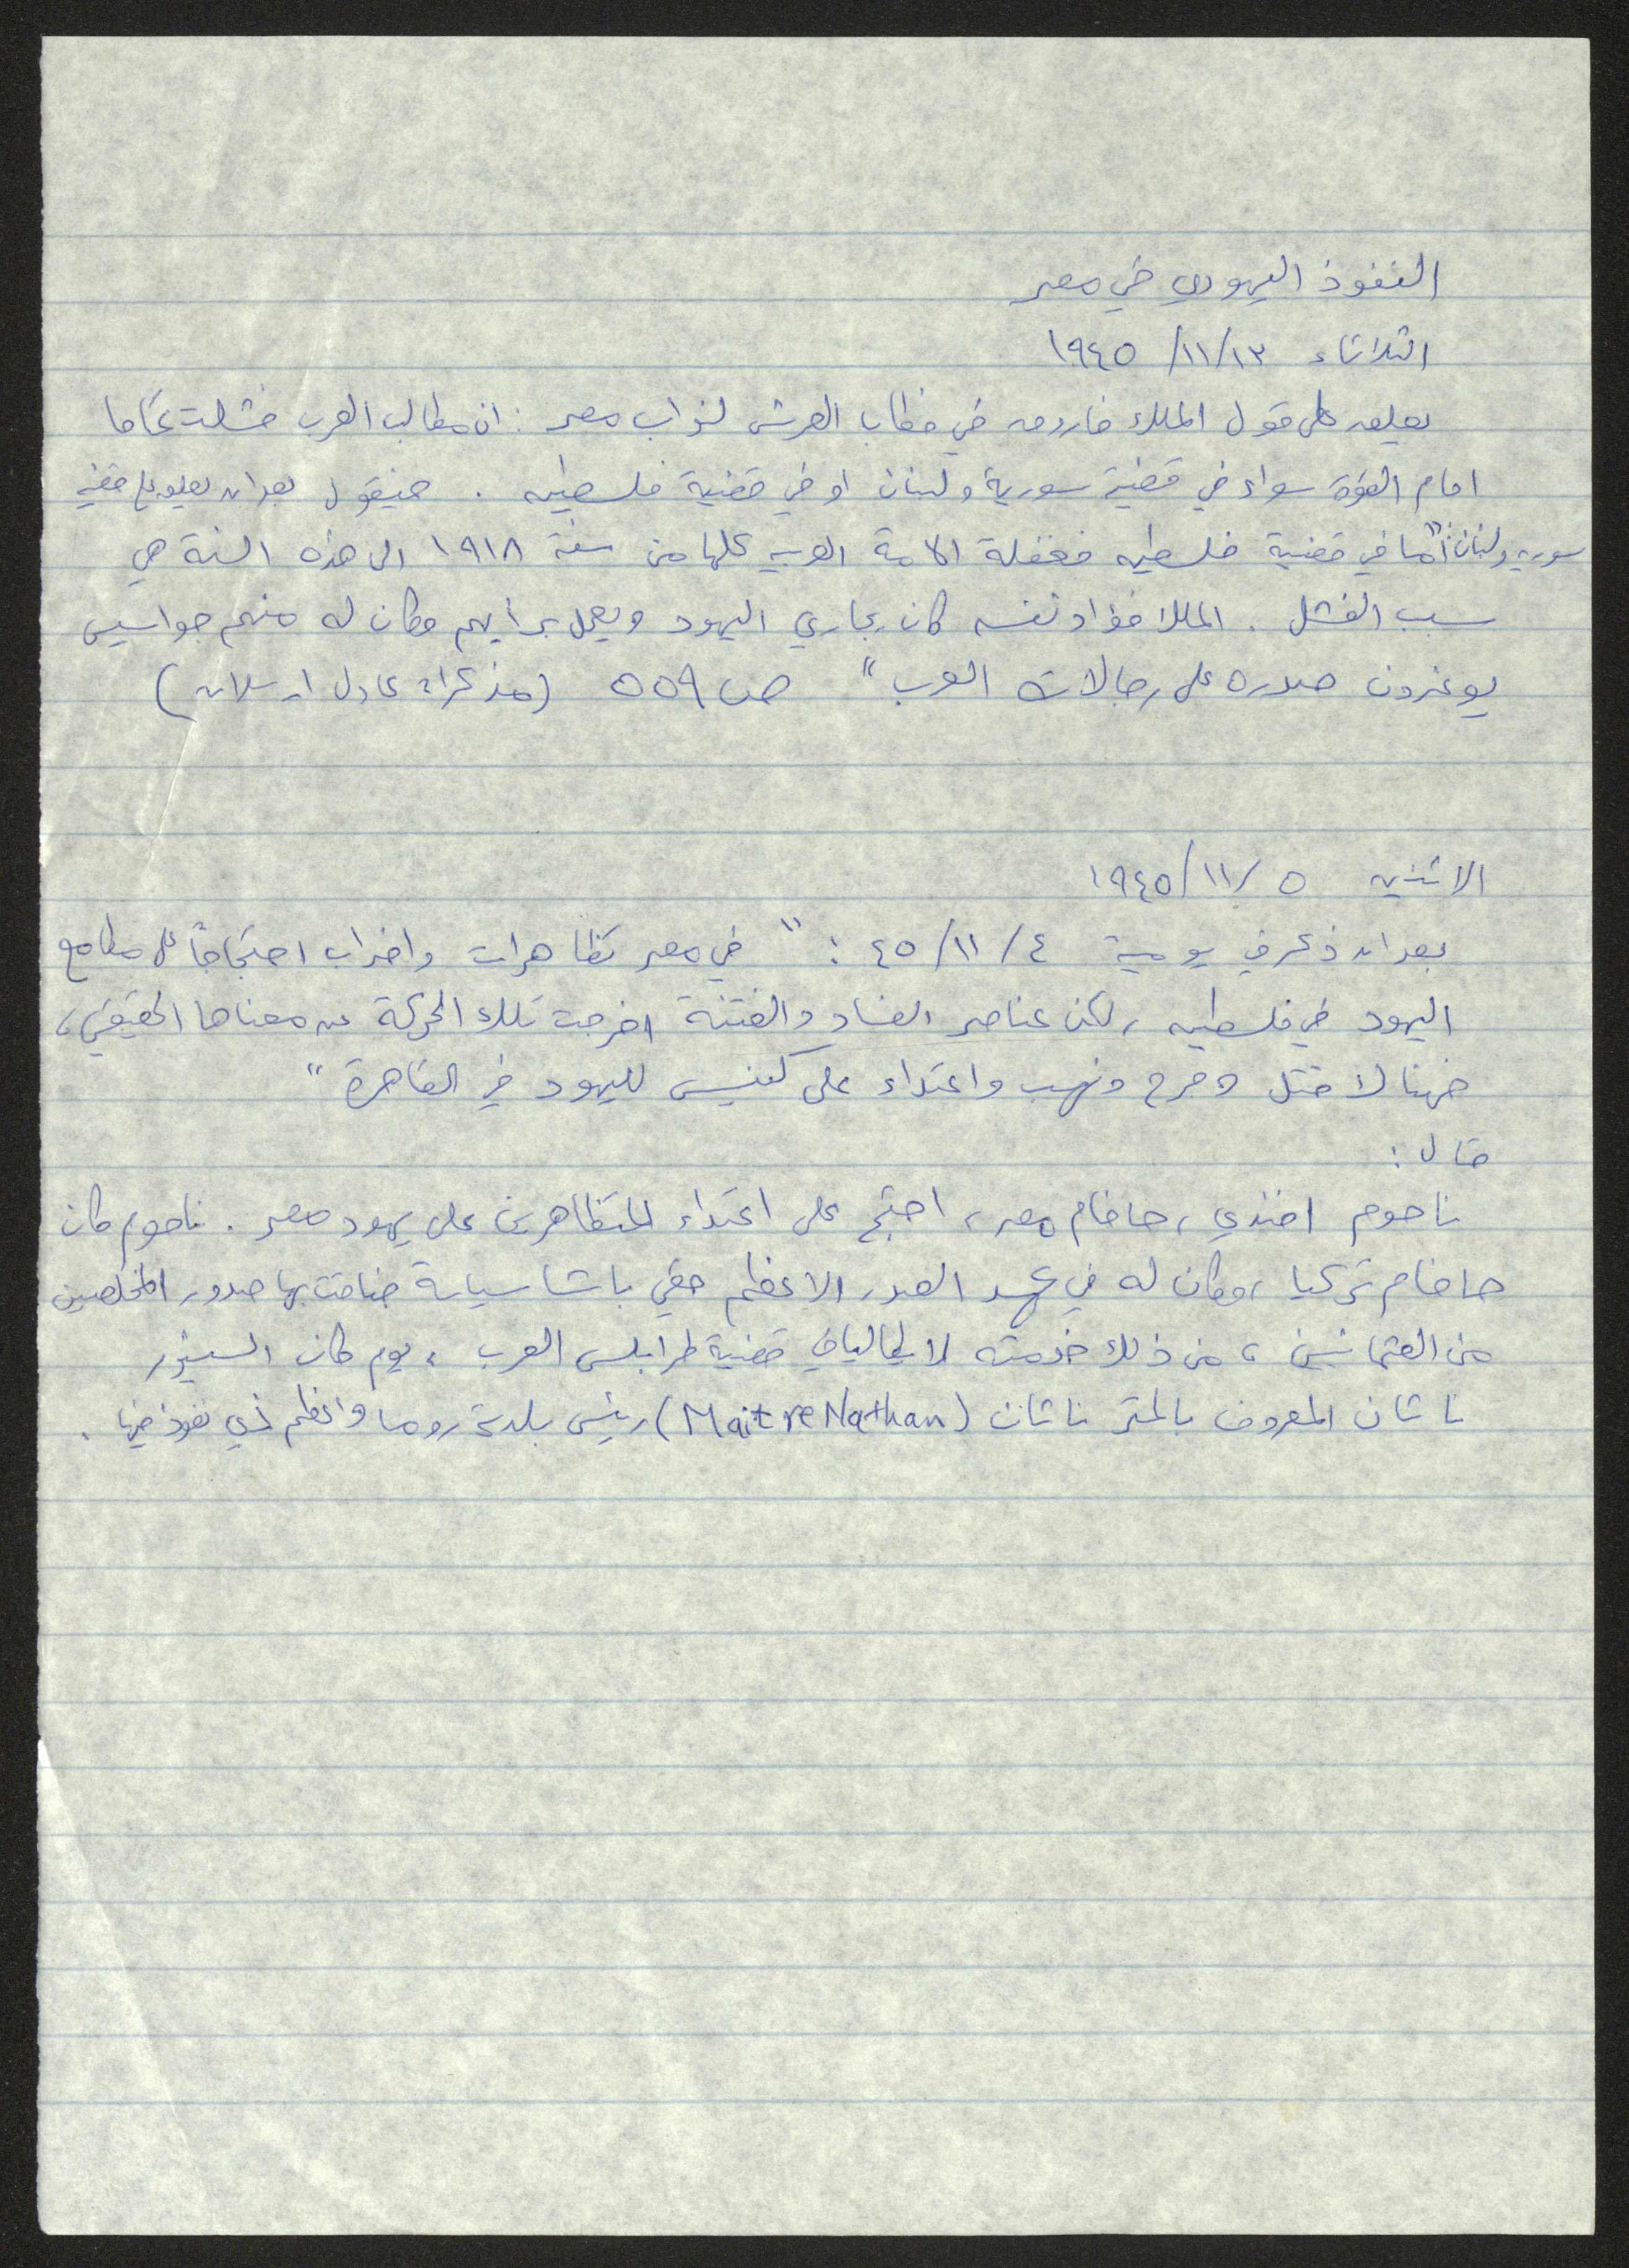 النفوذ اليهودي في مصر
الثلاثاء ١٣/١١/ ١٩٤٥
يعلق على قول الملك فاروق في خطاب العرش لنواب مصر : ان مطالب العرب فشلت تماما
امام القوة سواء في قضية سورية ولبنان او في قضية فلسطين . فيقول بعد ان يعلق على قضية
سورية ولبنان : "أما في قضية فلسطين فغفلة الامة العربية كلها من سنة ١٩١٨ الى هذه السنة هي
سبب الفشل . الملك فؤاد نفسه كان يجاري اليهود ويعمل برأيهم وكان له منهم جواسيس
يوغرون صدره على رجالات العرب" ص ٥٥٩ (مذكرات عادل ارسلان)
الاثنين ٥ /١١/ ١٩٤٥
بعد ان ذكر في يومية ٤ /١١/ ٤٥ : " في مصر تظاهرات واضراب احتجاجاً على مطامع
اليهود في فلسطين ، لكن عناصر الفساد والفتنة اخرجت تلك الحركة عن معناها الحقيقي ،
فهنالك قتل وجرح ونهب واعتداء على كنيس لليهود في القاهرة "
قال :
ناحوم افندي ، حاخام مصر ، احتج على اعتداء المتظاهرين على يهود مصر . ناحوم كان
حاخام تركيا ، وكان له في عهد الصدر الاعظم حقي باشا سياسة ضاقت بها صدور المخلصين
من العثمانيين ، من ذلك خدمته لايطاليا في قضية طرابلس الغرب ، يوم كان السنيور
ناتان المعروف بالمتر ناتان (Maitre Nathan) رئيس بلدية روما واعظم ذي نفوذ فيها .